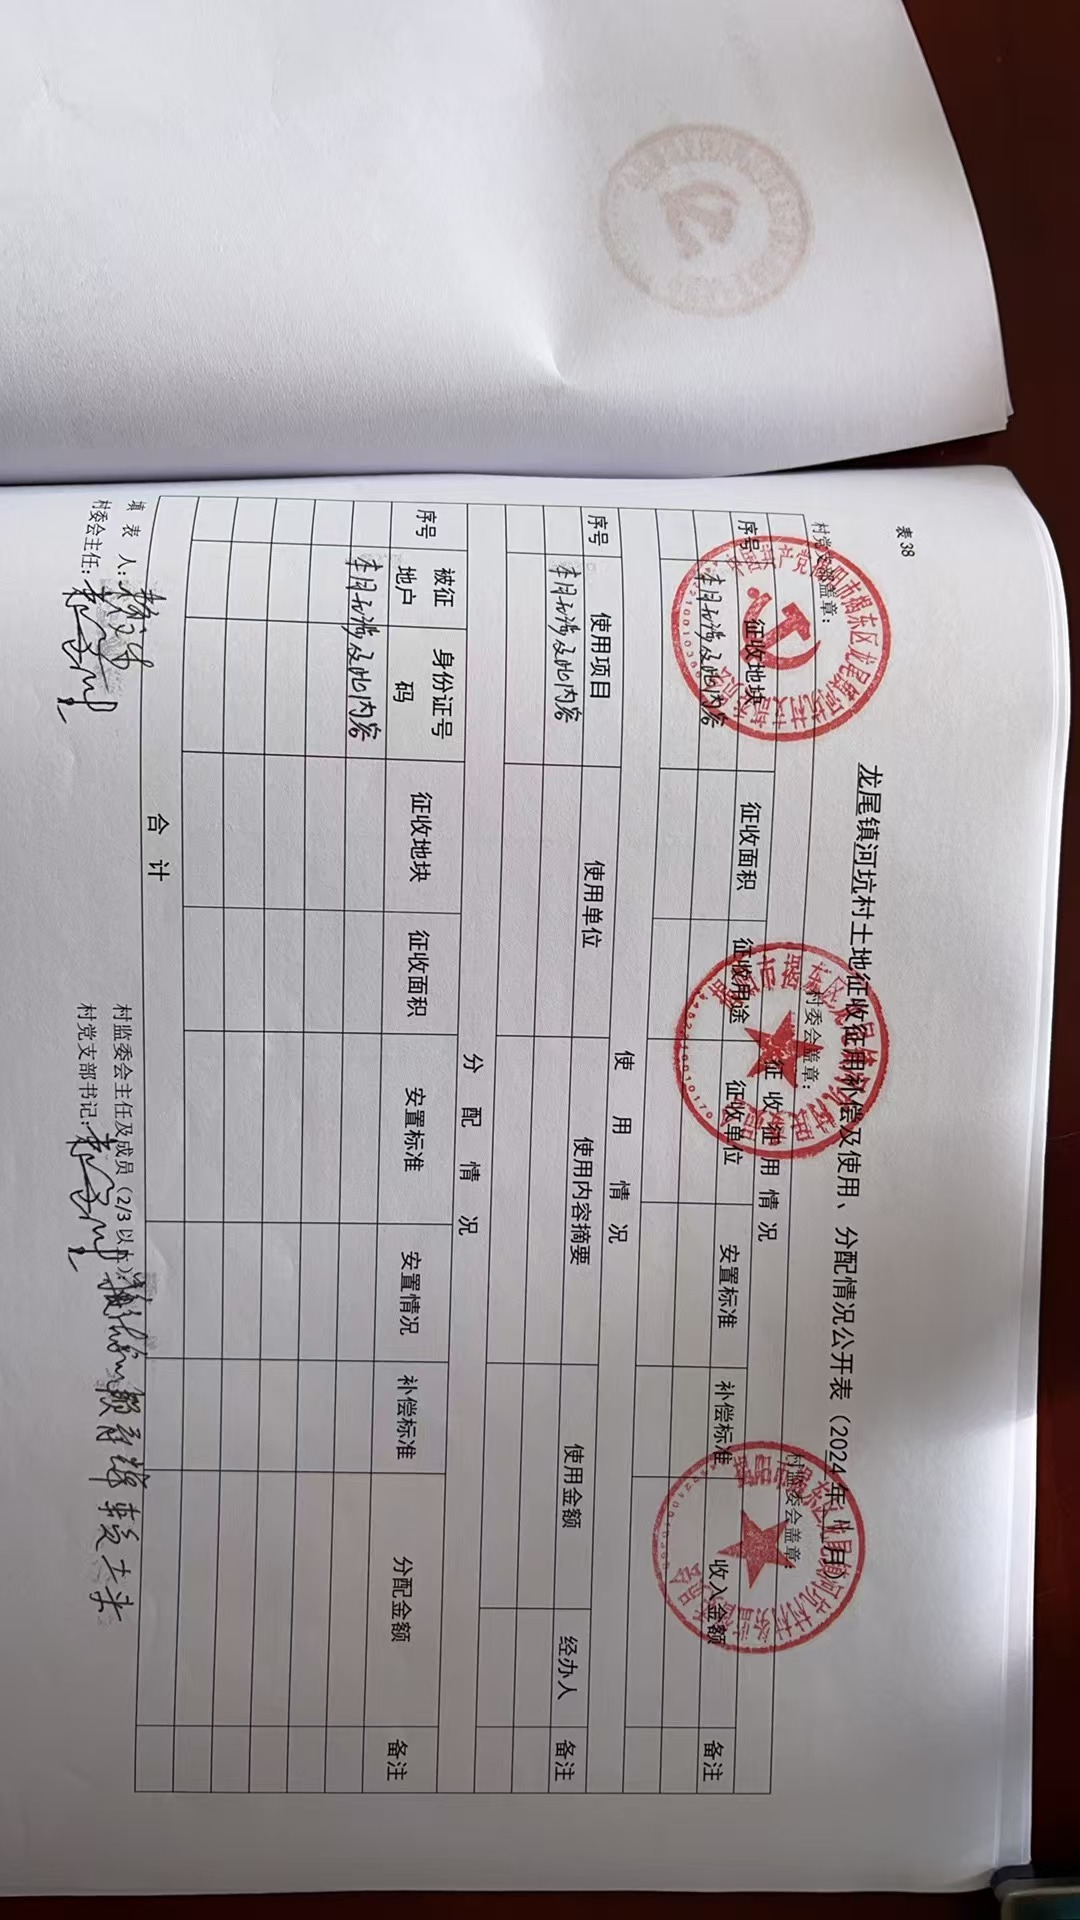 表 38
龙尾镇河坑村土地征收征用补偿及使用、分配情况公开表（2024年11月）
村党支部盖章： 村委会盖章： 村监委会盖章：
征 收 征 用 情 况
序号 征收地块 征收面积 征收用途 征收单位 安置标准 补偿标准 收入金额 备注
本月无涉及此内容
使 用 情 况
序号 使用项目 使用单位 使用内容摘要 使用金额 经办人 备注
本月无涉及此内容
分 配 情 况
序号 被征地户 身份证号码 征收地块 征收面积 安置标准 安置情况 补偿标准 分配金额 备注
本月无涉及此内容
合 计
填 表 人： 村监委会主任及成员（2/3 以上）：
村委会主任： 村党支部书记：